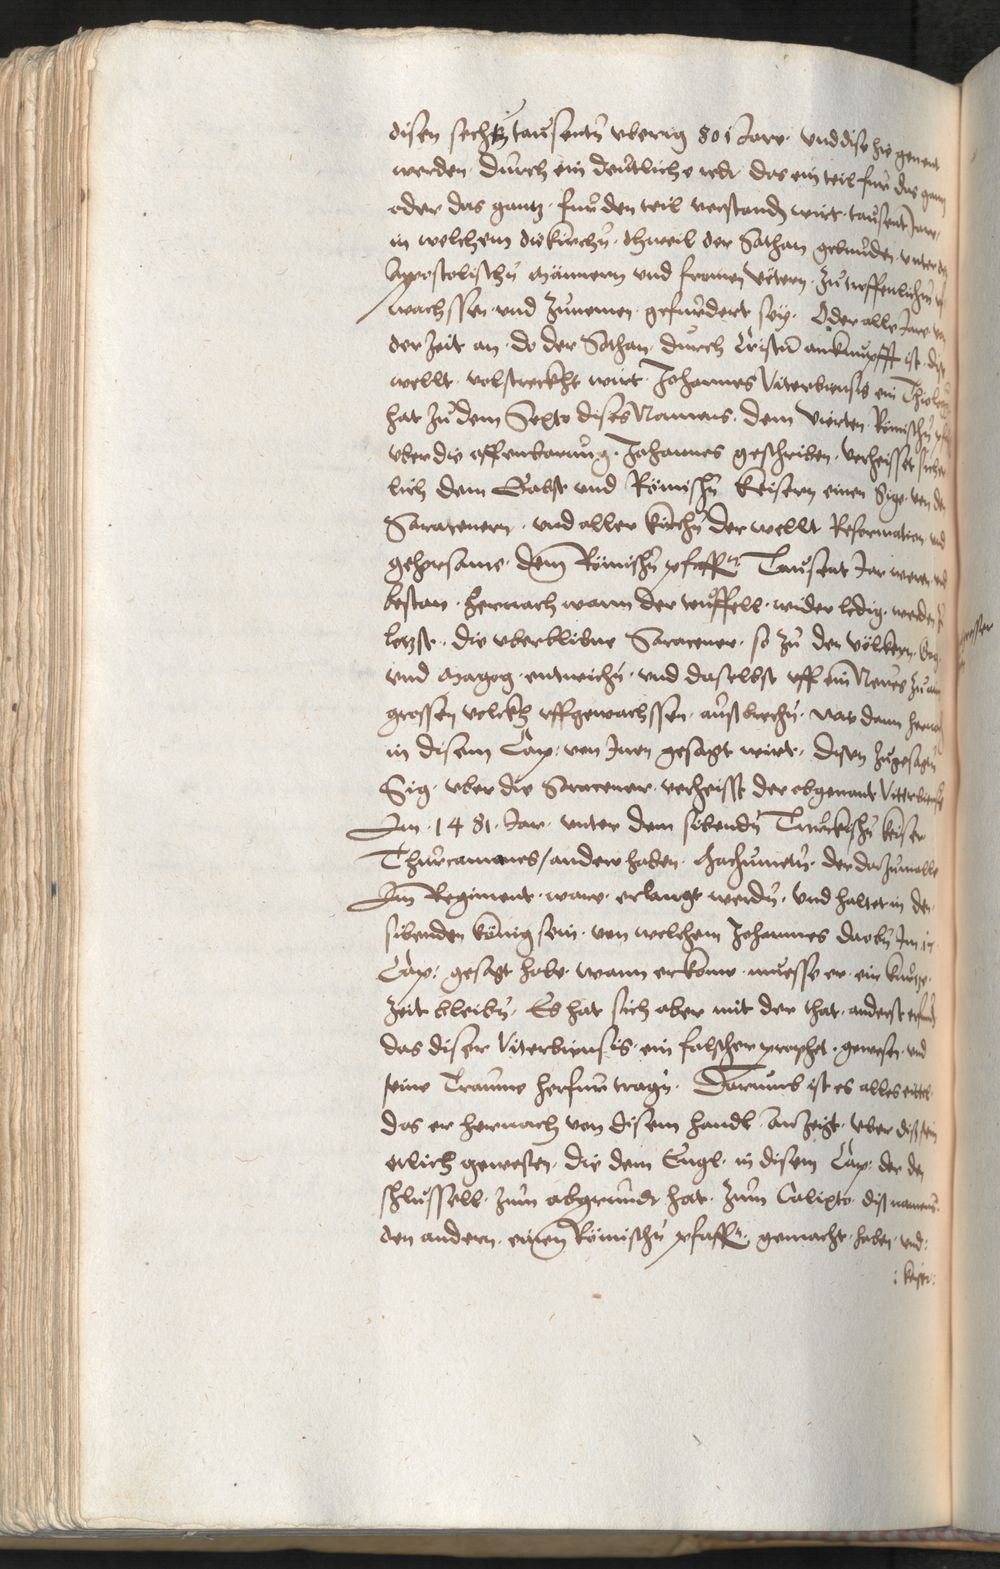 disen sechtz tausentn uberig 801 Jare. unddise hie genent
werden. durch ein deutliche redt das ein teil fur das gantz
oder das gantz. fur den teil verstanden wirt. tausent Jare.
in welchem die kirchn. dhweil der Sathan gebunden. unter den
Apostolischn Männern und fromen Vätern. zu treffenlichem uff
wachssen. und zunemen. gefurdert sey. Oder alle Jare von
der zeit an. do der Sathan. durch Cristum anknupfft ist. dise
wellt. volstreckht wirt. Johannes Viterbiensis ein Theologus
hat zu dem Sexto dises Namens. dem vierten Römischn
uber die offenbarung. Johannes geschriben. verheisset sicher
lich dem Babst und Römischn Keisern einen Sige. von den
Saracenern. und aller kirchn der wellt Reformation und
gehorsame. dem Römischn pfaffen Tausent Jar weren und
bestan. Hernach wann der teuffell. wider ledig. werden zu
letzst. die uberblibne Saracener. so zu den völckern. Gog
und Magog. entwichn. und daselbst uff ein Neues zu aim
grossen volckh uffgewachssen. außbrechn. wie dann hernach
in disem Cap. von Inen gesagt wirt. disen zugesagtn
Sig. uber die Saracener. verheisst der obgenant Viterbiensis
Im. 1481. Jar. unter dem sibendn Turckischn keiser
Thurcomannes/ander haben. Machumetn. der dazumalle
Im Regiment. ware. erlangt werdn. und haltet in den
sibenden König sein. von welchem Johannes daobn Im 17
Cap: gesagt habe. wann erkome. muesse er. ein kurtze.
zeit bleibn. Es hat sich aber mit der that. anderst erfunden
das diser Viterbiensis. ein falscher prophet. gewesen. und
seine Traume herfur tragn. Darumb ist es alles eittel.
das er hernach von disem handl anzeigt. uber diß sein
etlich gewesen. die dem Engl. in disem Cap. der den
schlussell. zum abgrundt hat. zum Calixto. diß namens.
den andern. einem Römischn pfaffen. gemacht. haben. und:
: keiser: